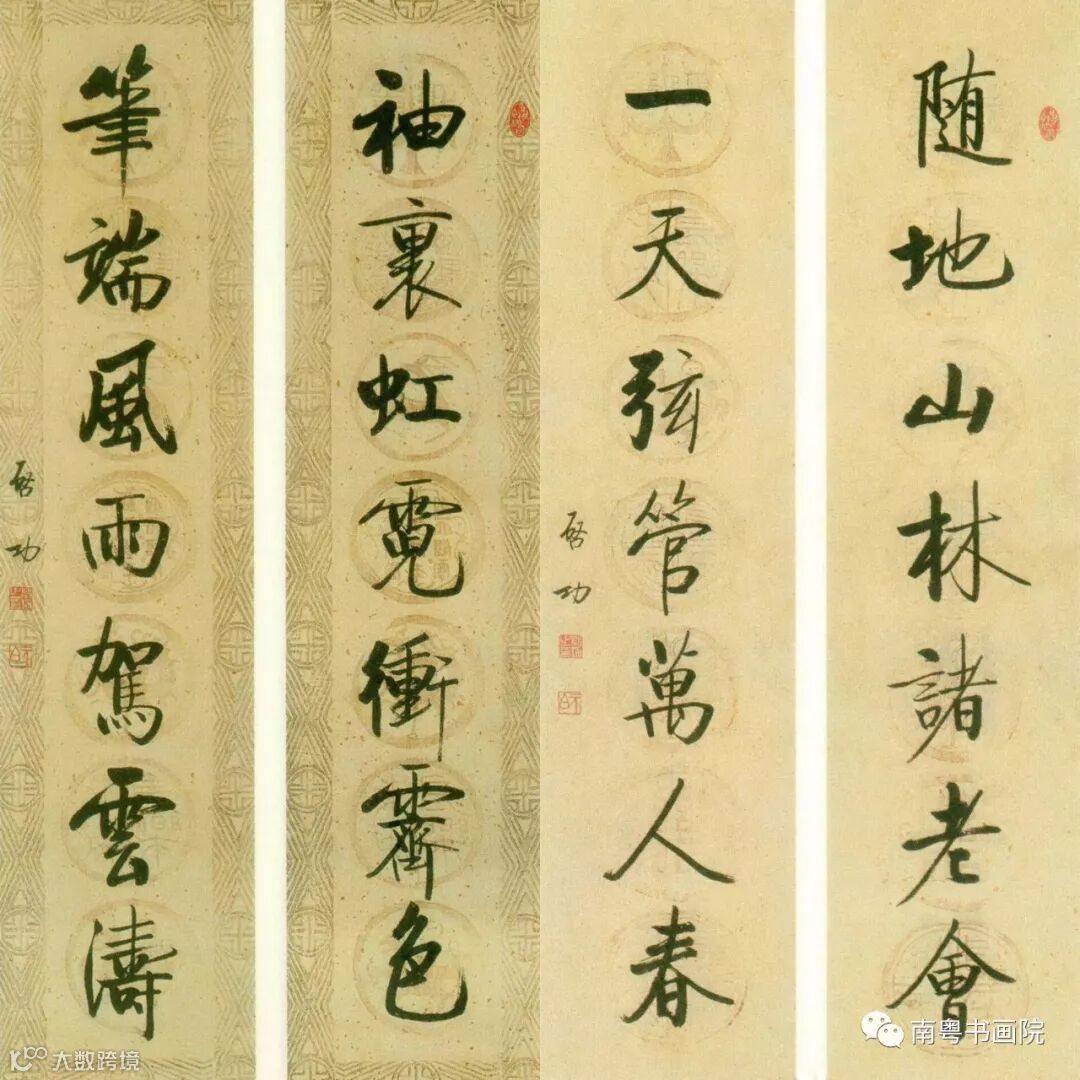 随地山林諸老會
一天弦管萬人春
啓功
袖裏虹霓衝霽色
筆端風雨駕雲濤
啓功
南粤书画院
大数跨境